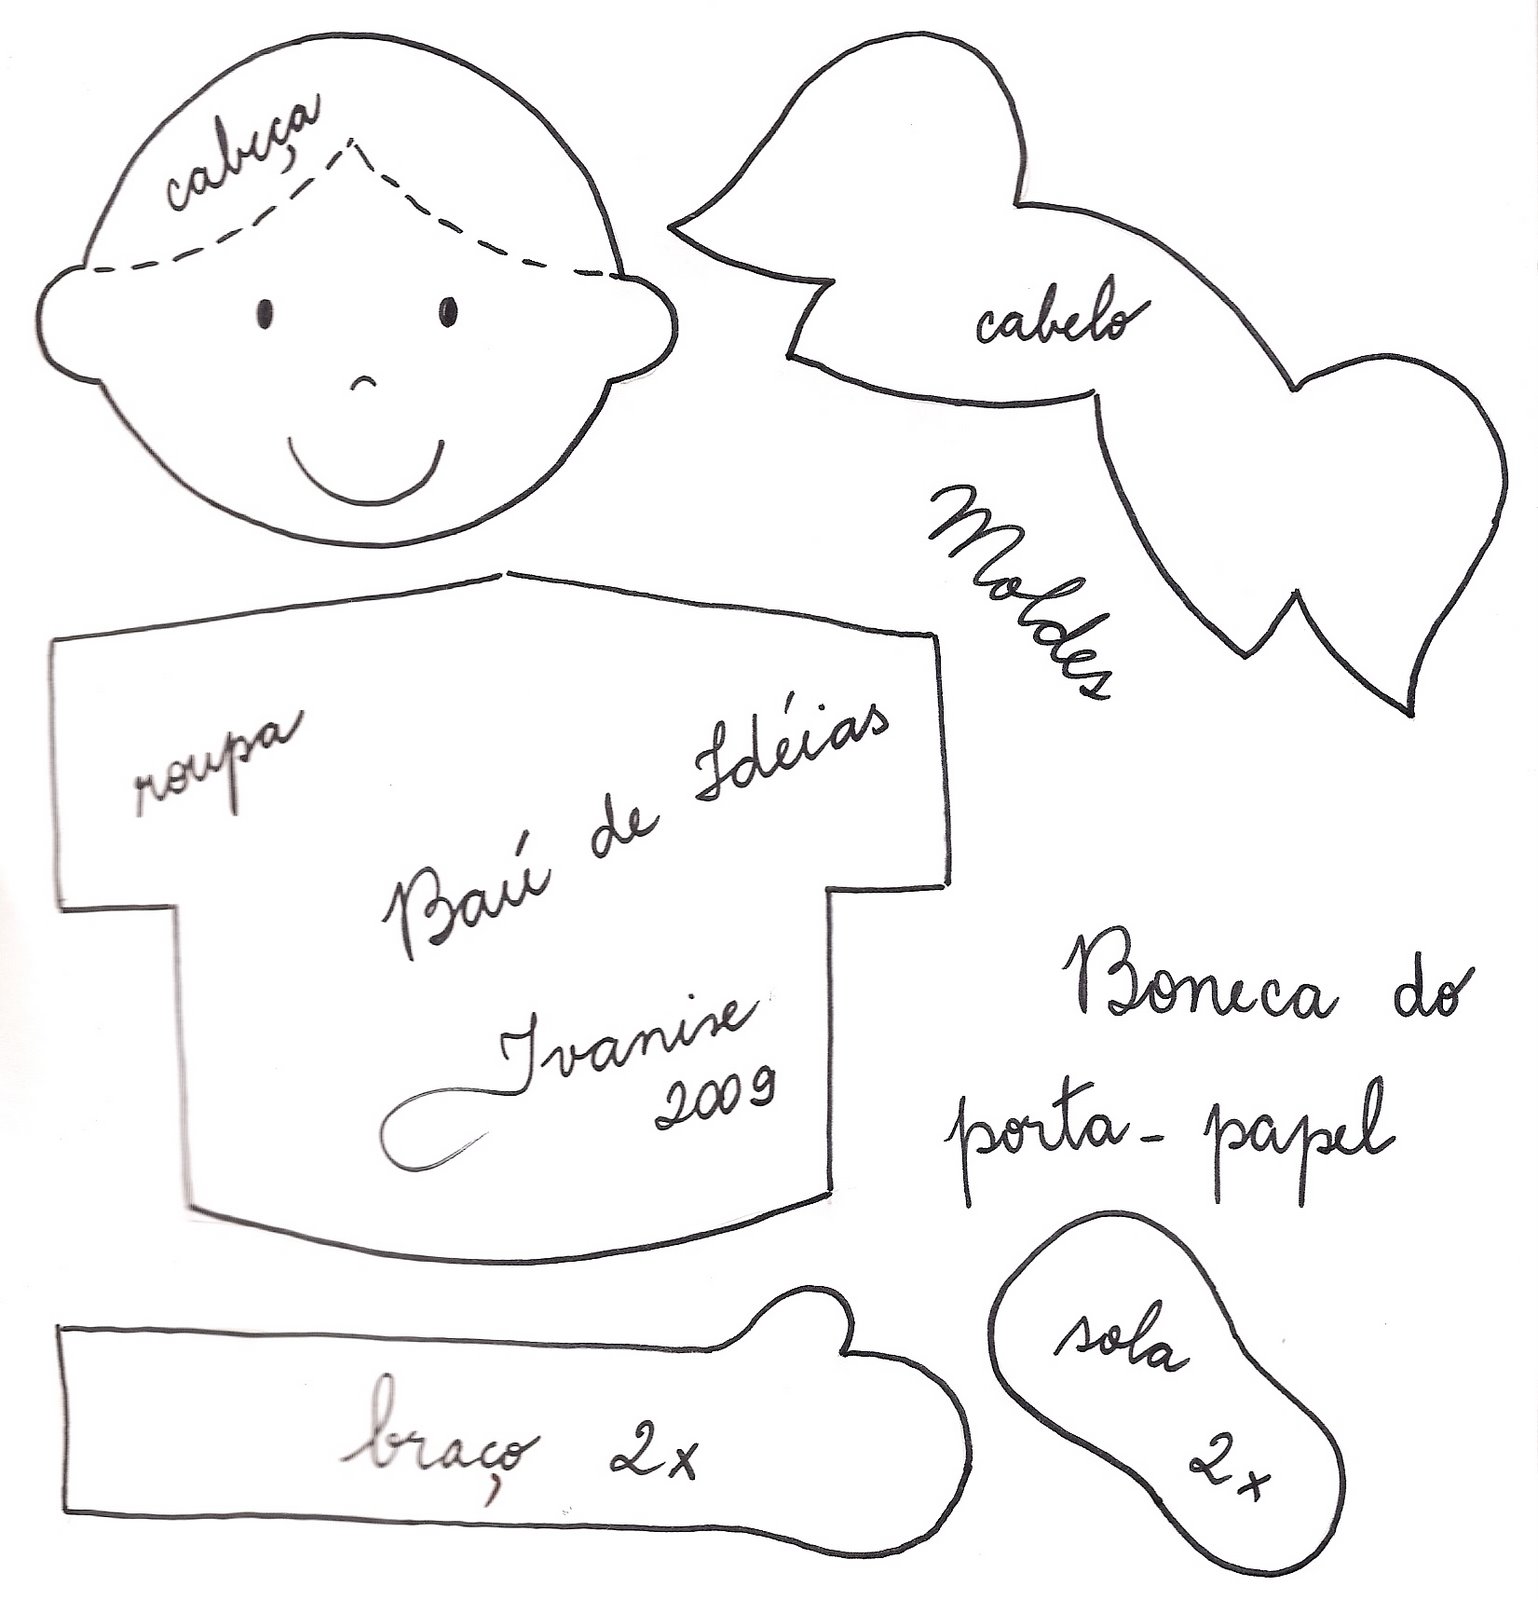 cabeça
cabelo
Moldes
roupa
Baú de Idéias
Ivanise
2009
Boneca do
porta-papel
braço 2x
sola
2x